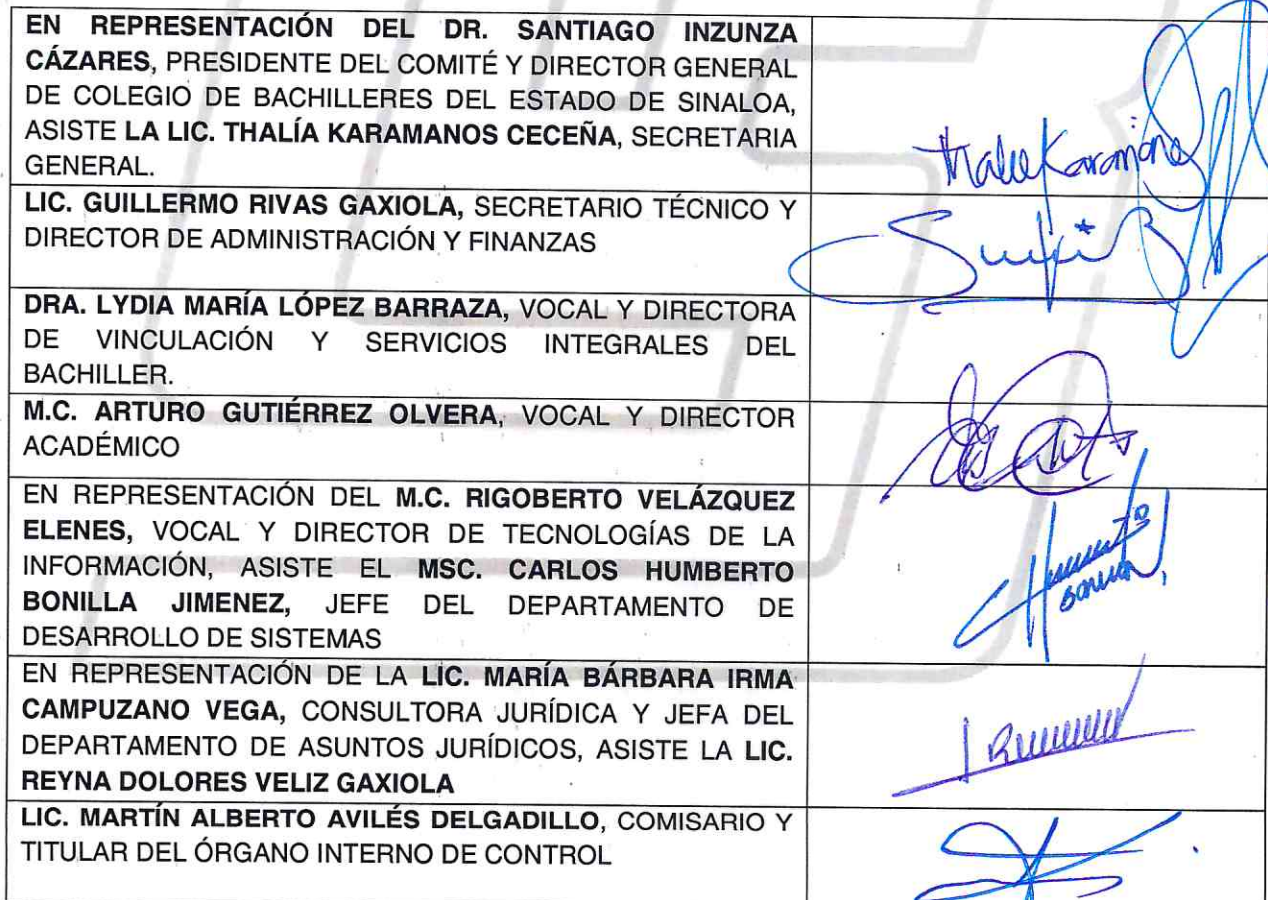 EN REPRESENTACIÓN DEL DR. SANTIAGO INZUNZA
CÁZARES, PRESIDENTE DEL COMITÉ Y DIRECTOR GENERAL
DE COLEGIO DE BACHILLERES DEL ESTADO DE SINALOA,
ASISTE LA LIC. THALÍA KARAMANOS CECEÑA, SECRETARIA
GENERAL.
LIC. GUILLERMO RIVAS GAXIOLA, SECRETARIO TÉCNICO Y
DIRECTOR DE ADMINISTRACIÓN Y FINANZAS
DRA. LYDIA MARÍA LÓPEZ BARRAZA, VOCAL Y DIRECTORA
DE VINCULACIÓN Y SERVICIOS INTEGRALES DEL
BACHILLER.
M.C. ARTURO GUTIÉRREZ OLVERA, VOCAL Y DIRECTOR
ACADÉMICO
EN REPRESENTACIÓN DEL M.C. RIGOBERTO VELÁZQUEZ
ELENES, VOCAL Y DIRECTOR DE TECNOLOGÍAS DE LA
INFORMACIÓN, ASISTE EL MSC. CARLOS HUMBERTO
BONILLA JIMENEZ, JEFE DEL DEPARTAMENTO DE
DESARROLLO DE SISTEMAS
EN REPRESENTACIÓN DE LA LIC. MARÍA BÁRBARA IRMA
CAMPUZANO VEGA, CONSULTORA JURÍDICA Y JEFA DEL
DEPARTAMENTO DE ASUNTOS JURÍDICOS, ASISTE LA LIC.
REYNA DOLORES VELIZ GAXIOLA
LIC. MARTÍN ALBERTO AVILÉS DELGADILLO, COMISARIO Y
TITULAR DEL ÓRGANO INTERNO DE CONTROL